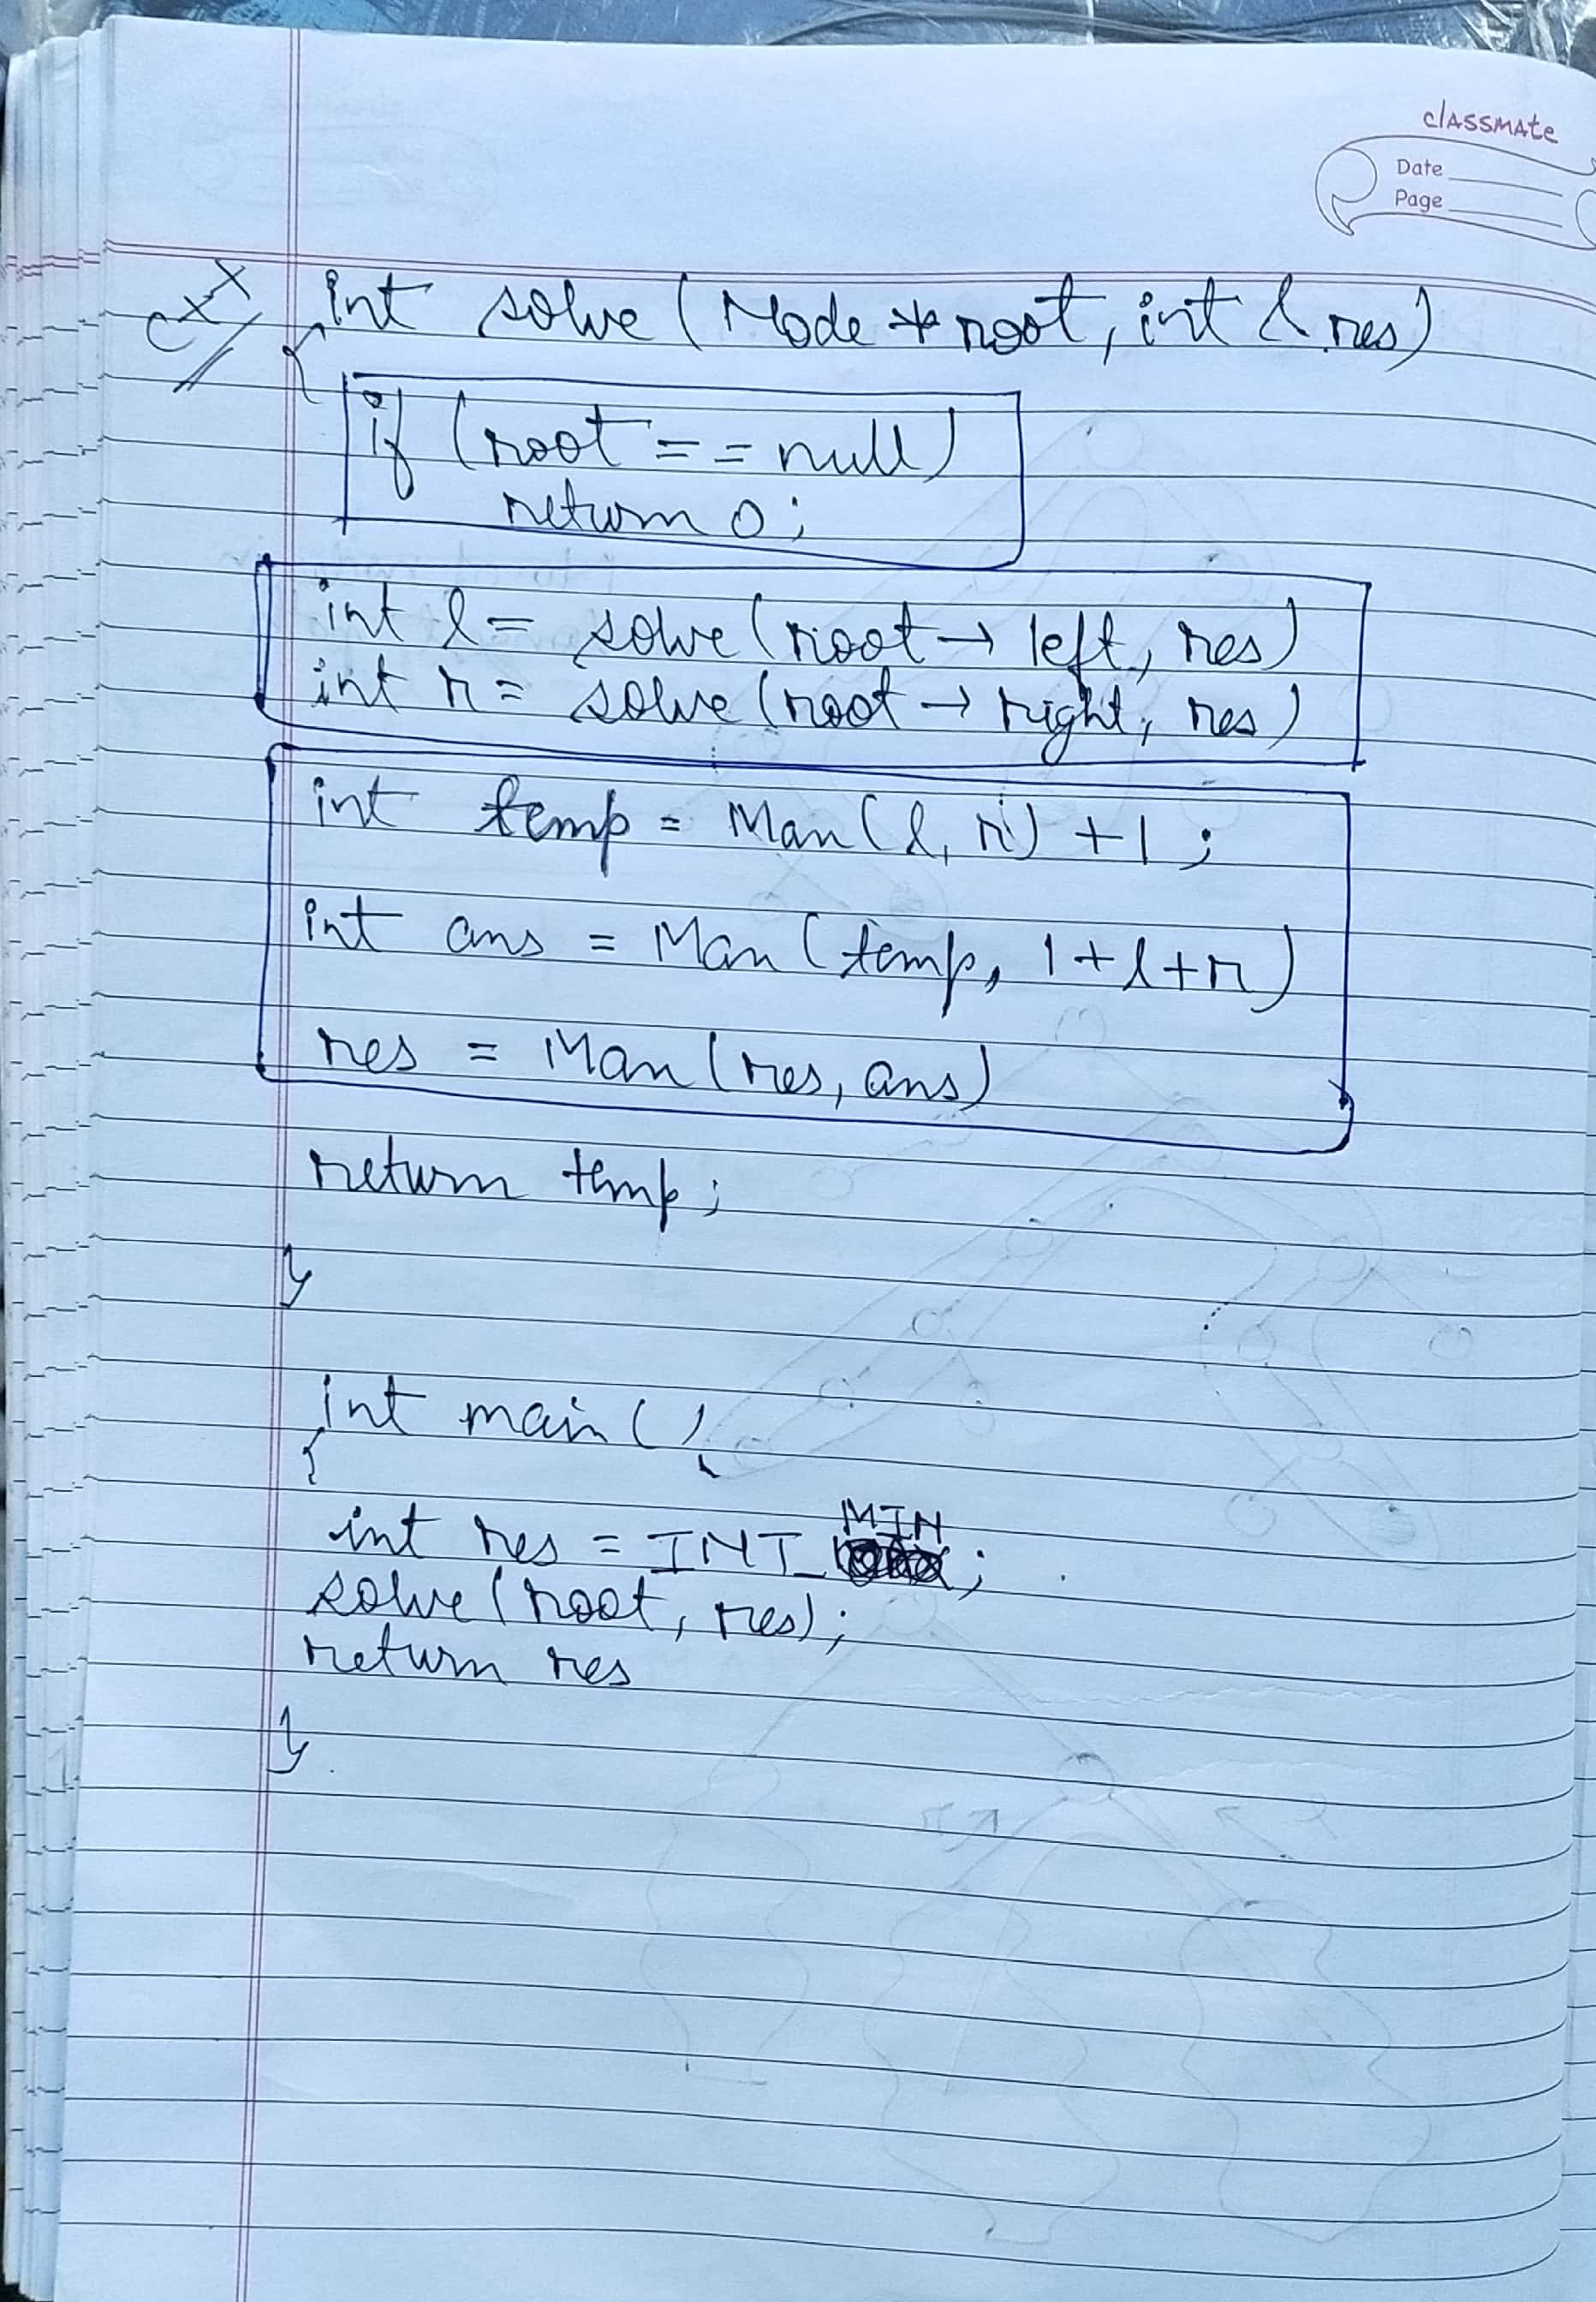 classmate
Date
Page
CXX
int solve (Node * root, int & res)
{
if (root == null)
return 0;
int l = solve (root → left, res)
int r = solve (root → right, res)
int temp = Max (l, r) + 1;
int ans = Max (temp, 1 + l + r)
res = Max (res, ans)
return temp;
}
int main ()
{
int res = INT_MIN;
solve (root, res);
return res
}